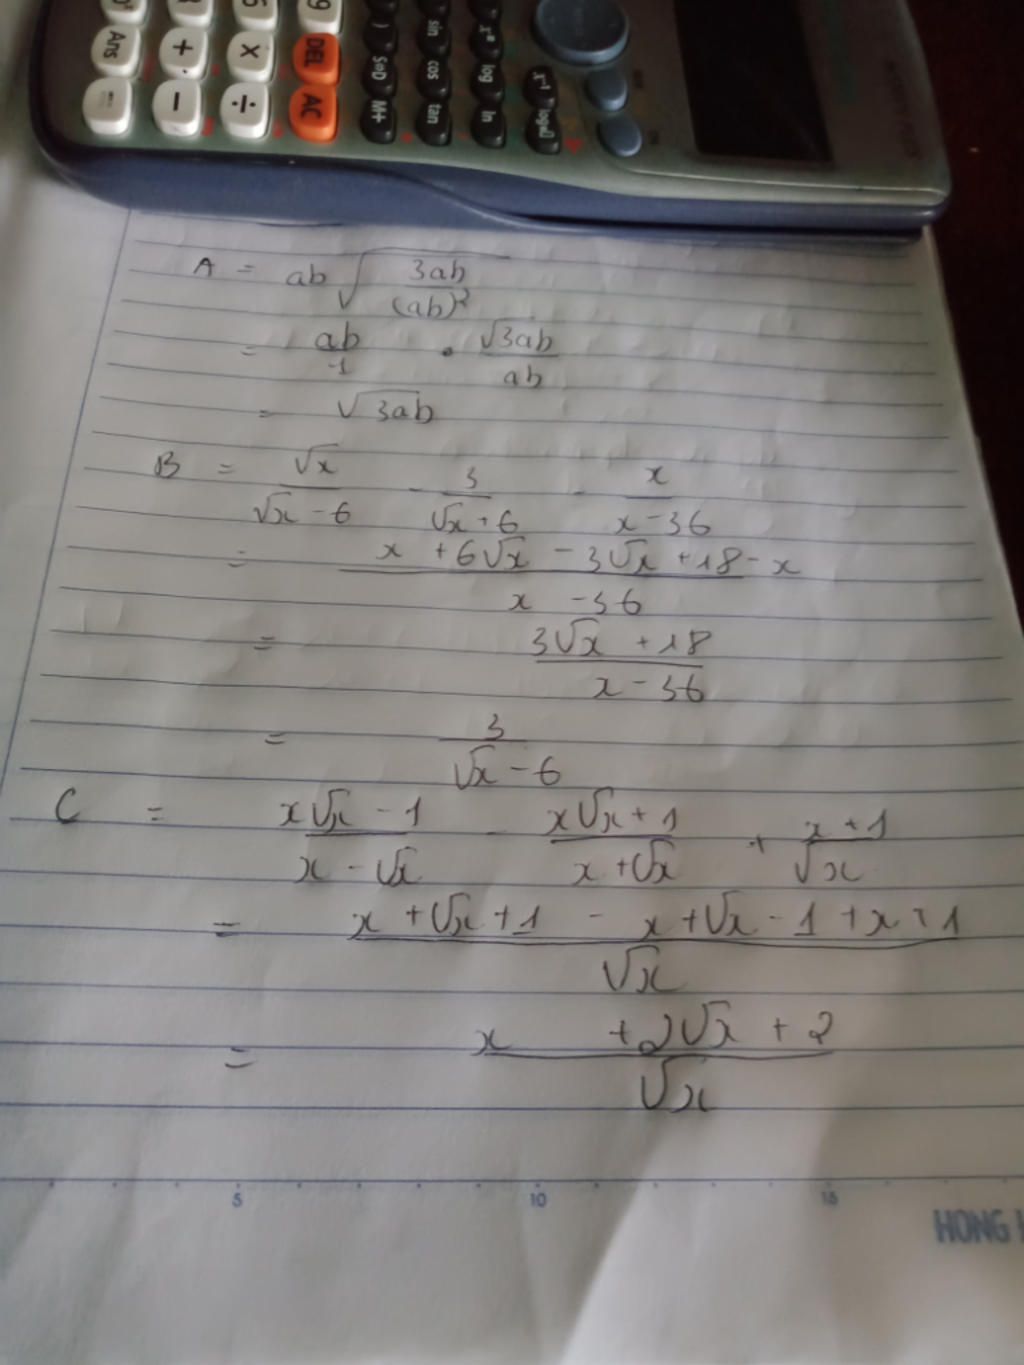 Ans + × DEL ) sin x² 
= − ÷ AC S⇔D cos log x⁻¹
M+ tan ln log
A = ab√(3ab/(ab)²)
= ab/1 · √3ab/ab
= √3ab
B = √x/(√x − 6) − 3/(√x + 6) − x/(x − 36)
= (x + 6√x − 3√x + 18 − x)/(x − 36)
= (3√x + 18)/(x − 36)
= 3/(√x − 6)
C = (x√x − 1)/(x − √x) − (x√x + 1)/(x + √x) + (x + 1)/√x
= (x + √x + 1 − x + √x − 1 + x + 1)/√x
= (x + 2√x + 2)/√x
5 10 15
HONG